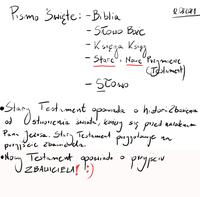 Pismo Święte: - Biblia
- Słowo Boże
- Księga Ksiąg
- Stare i Nowe Przymierze
(Testament)
- Słowo
• Stary Testament opowiada o historii Zbawienia
od stworzenia świata, kończy się przed narodzinami
Pana Jezusa. Stary Testament przygotowuje na
przyjście zbawiciela.
• Nowy Testament opowiada o przyjściu
ZBAWICIELA! :)